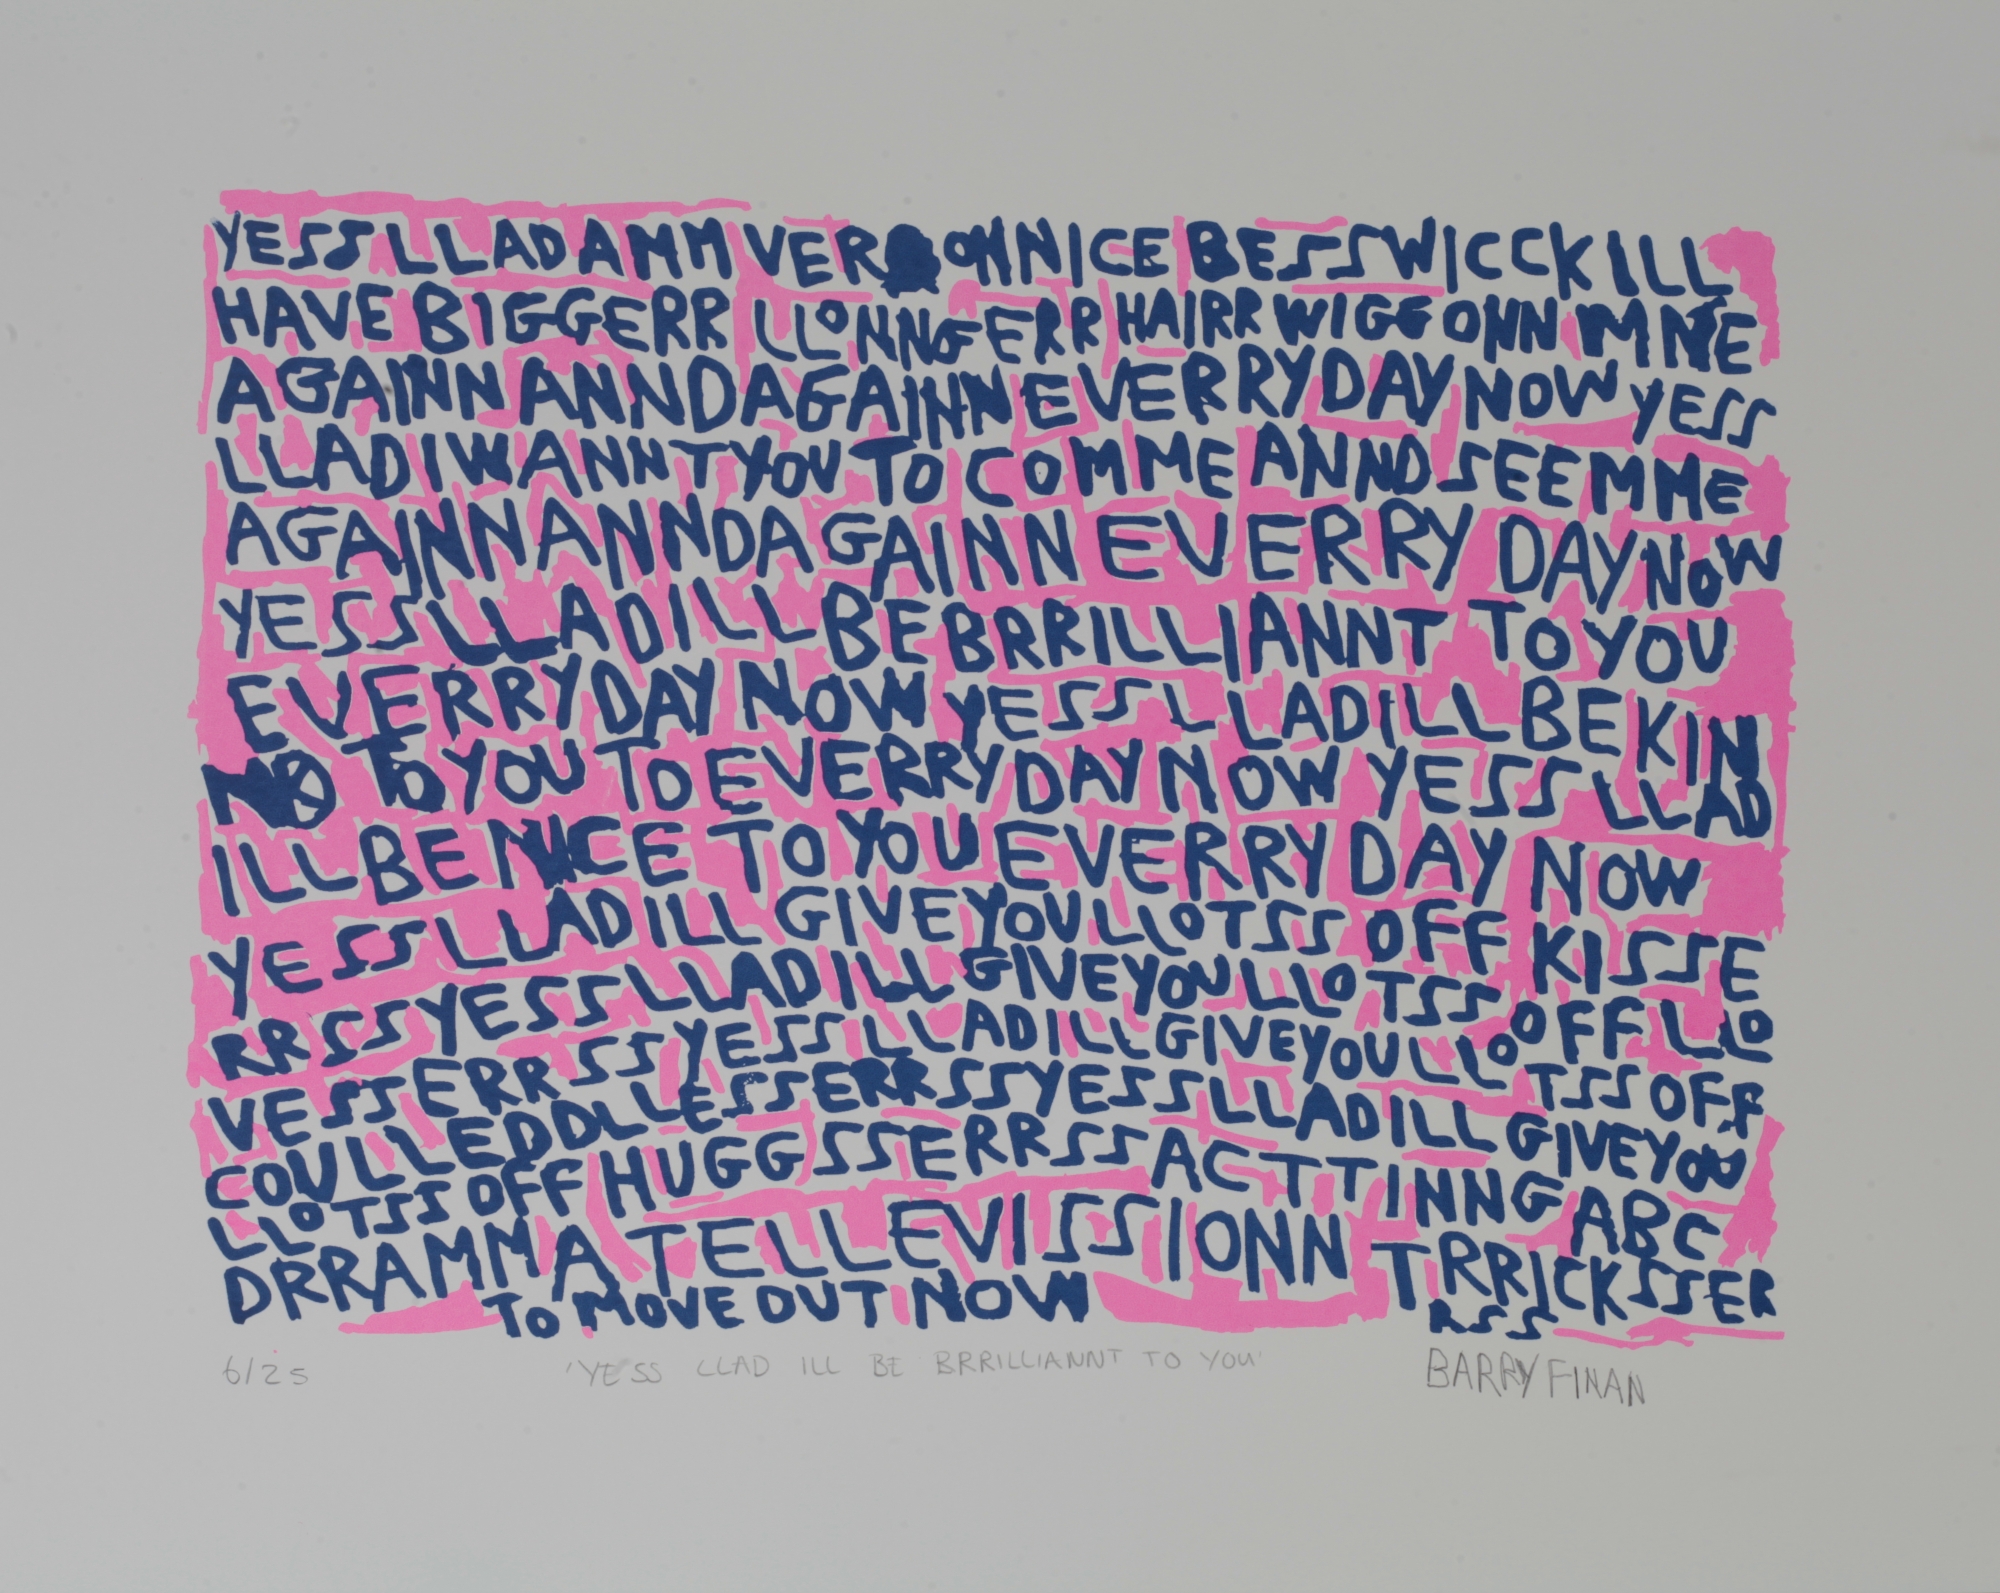 YESS LLAD AMM VER ONNICE BESSWICCK ILL
HAVE BIGGERR LLONNGERR HAIRR WIGG ONN MME
AGAINN ANND AGAINN EVERRY DAY NOW YESS
LLAD I WANNT YOU TO COMME ANND SEE MME
AGAINN ANND AGAINN EVERRY DAY NOW
YESS LLAD ILL BE BRRILLIANNT TO YOU
EVERRY DAY NOW YESS LLAD ILL BE KIN
ND TO YOU TO EVERRY DAY NOW YESS LLAD
ILL BE NICE TO YOU EVERRY DAY NOW
YESS LLAD ILL GIVE YOU LLOTSS OFF KISSE
RRSS YESS LLAD ILL GIVE YOU LLOTSS OFF LLO
VESSERRSS YESS LLAD ILL GIVE YOU LLOTSS OFF
COULLEDDLLESSERRSS YESS LLAD ILL GIVE YOU
LLOTSS OFF HUGGSSERRSS ACTTINNG ABC
DRRAMMA TELLEVISSIONN TRRICKSSER
TO MOVE OUT NOW RSS
6/25 'YESS LLAD ILL BE BRRILLIANNT TO YOU' BARRY FINAN